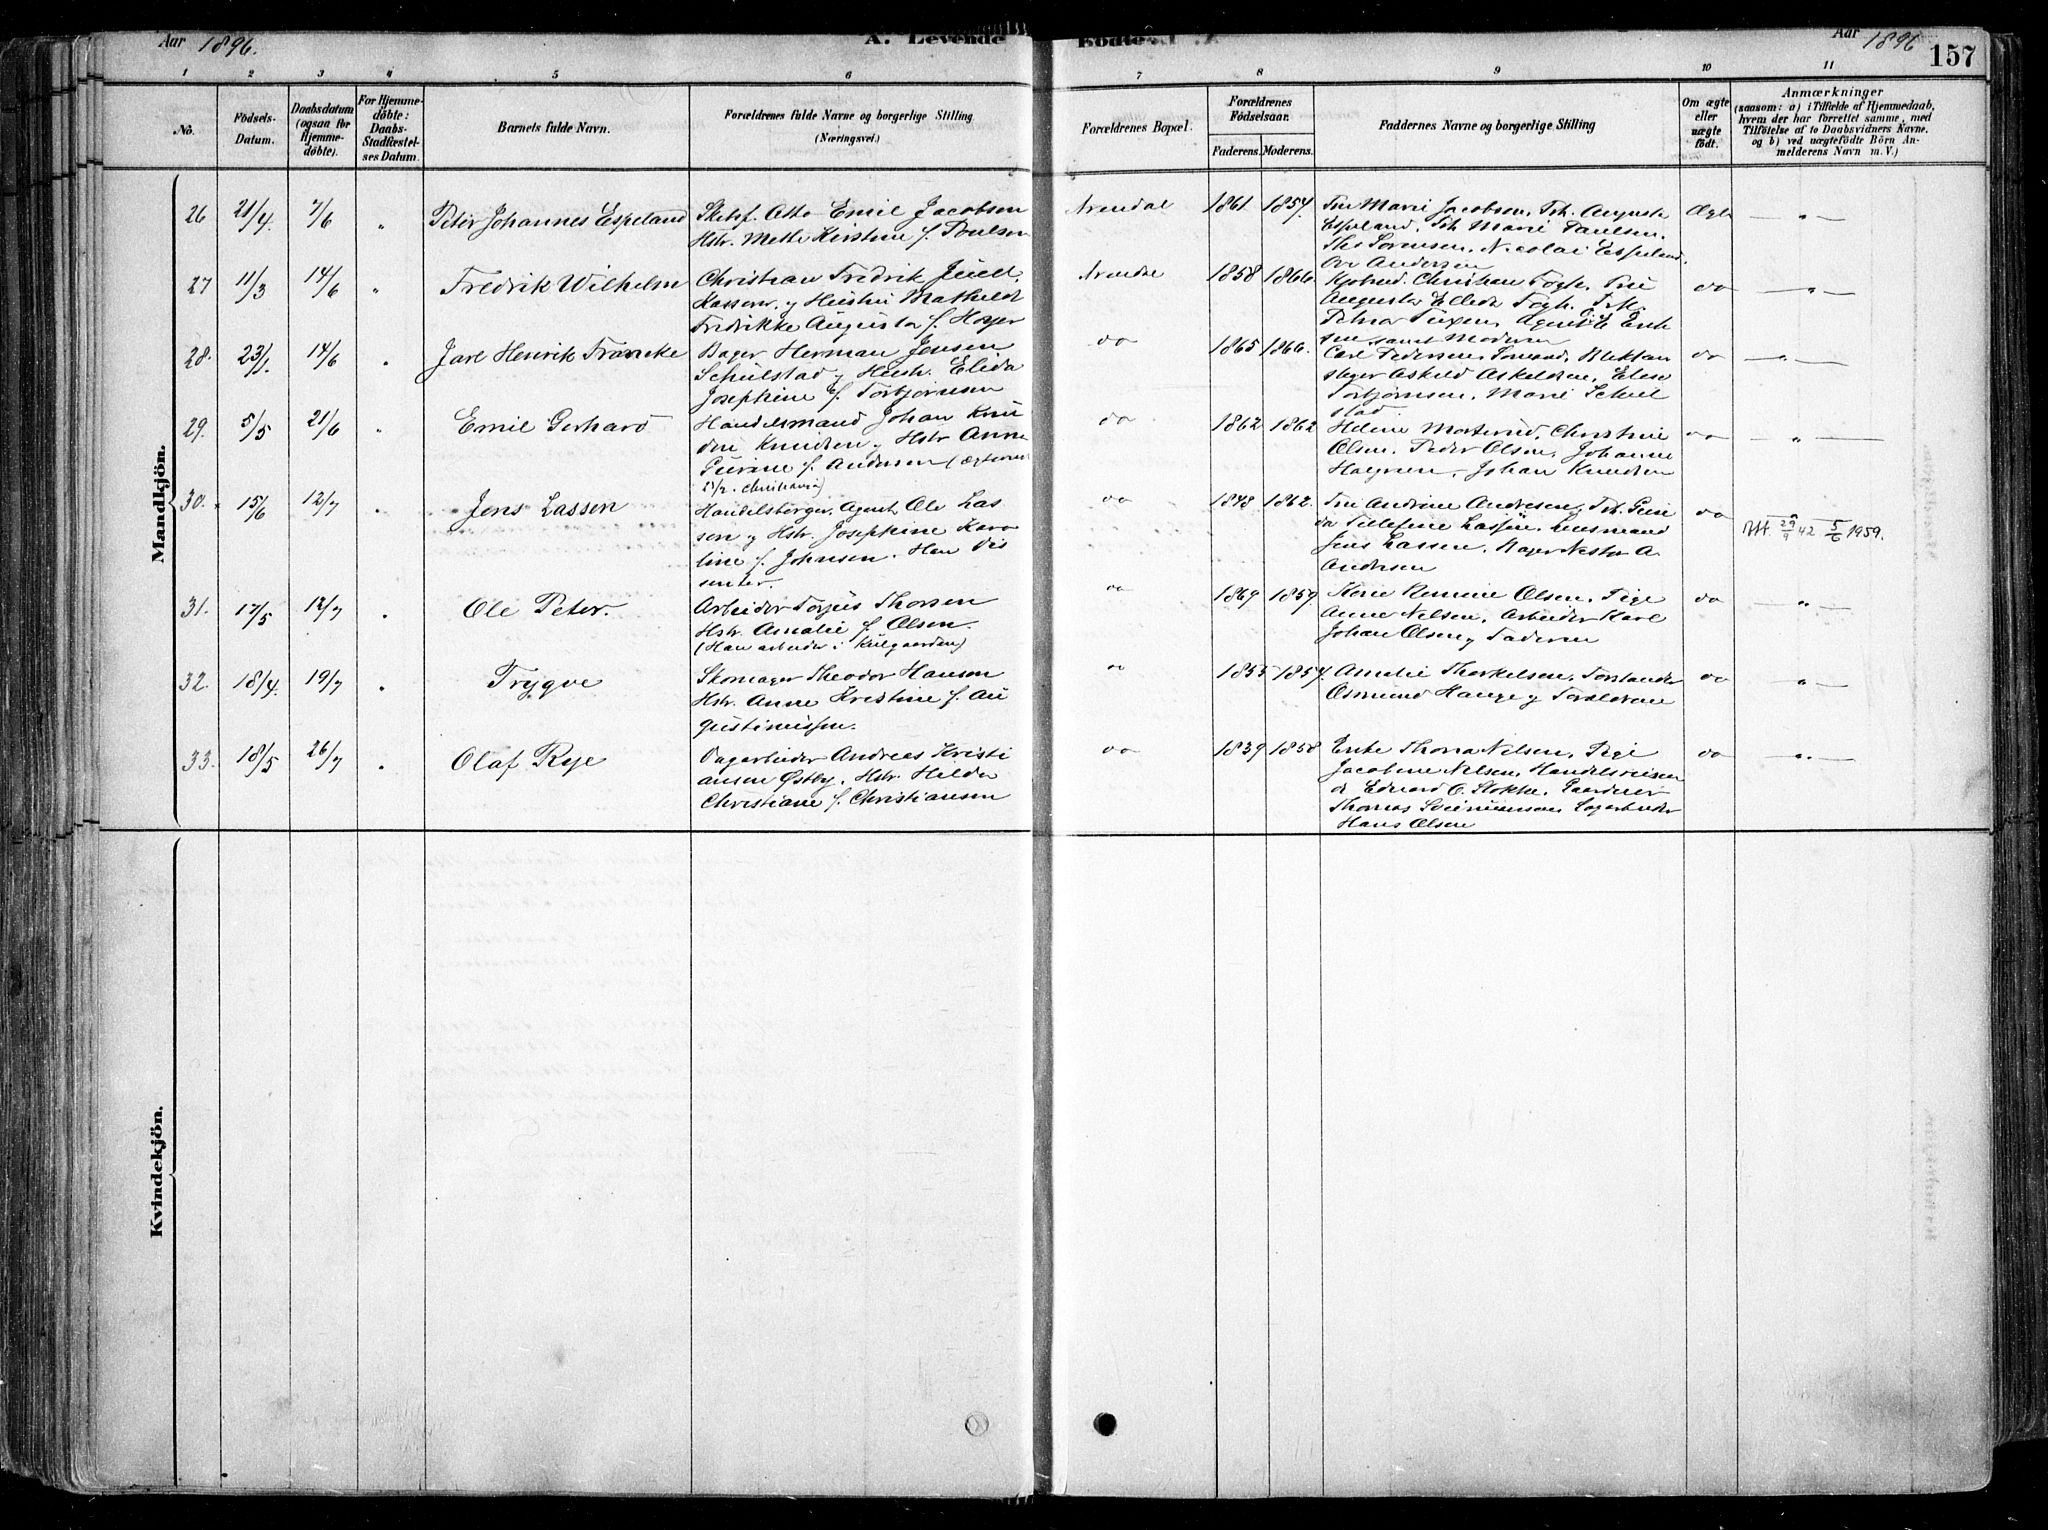 Aar 1896.
A. Levende
Fødte.
Aar 1896
157
1 2 3 4 5 6 7 8 9 10 11
No.
Födsels-
Datum.
Daabsdatum
(ogsaa for
Hjemme-
döbte).
For Hjemme-
döbte:
Daabs-
Stadfæstel-
ses Datum.
Barnets fulde Navn.
Forældrenes fulde Navne og borgerlige Stilling
(Næringsvei.)
Forældrenes Bopæl.
Forældrenes
Födselsaar.
Faderens. Moderens.
Faddernes Navne og borgerlige Stilling
Om ægte
eller
uægte
födt.
Anmærkninger
(saasom: a) i Tilfælde af Hjemmedaab,
hvem der har forrettet samme, med
Tilföielse af to Daabsvidners Navne.
og b) ved uægtefödte Börn An-
melderens Navn m. V.)
Mandkjön.
26 21/4. 7/6 " Peter Johannes Espeland
Otto Emil Jacobsen
Hstr. Mette Kirstine f. Poulsen
Arendal 1861 1854.
Fru Marie Jacobsen, Frk. Augusta
Espeland, Frk Marie Paulsen,
Ths Sørensen, Nicolai Espeland.
Ove Andersen
Ægte — " —
27 11/3 14/6 " Fredrik Wilhelm
Christian Fredrik Juell
Kasserer og Hustru Mathilde
Fredrikke Augusta f. Høyer
Arendal 1858 1866.
Kjøbmd. Christian Fogh, Frue
Augusta Elleda Fogh. Frk.
do — " —
28. 23/ 14/6 " Jarl Henrik Francke
Bager Herman Jensen
Schulstad og Hustr. Elida
Josephine f. Torbjørnsen
do 1865 1866.
sen samt Moderen
Carl Pedersen
Askild Askildsen, Elise
Torbjørnsen, Marie Schul
stad.
do — " —
29. 5/5 21/6 " Emil Gerhard
Handelsmand Johan Knu
Knudsen og Hstr. Anne
Gurine f. Andersen
Christiania)
do 1862 1862
Helene Christine
Olsen, Peder Olsen, Johanne
Halgreen, Johan Knudsen
do — " —
30. 15/6 12/7 Jens Lassen
Handelsborger, Agent Ole Las
sen og Hstr. Josephine Karo
line f. Johnsen. Han dis
senter.
do 1848 1862.
Fru Andrine Andresen,
Tellefine Lassen,
Jens Lassen, Bager Nestor A.
Andersen
do
29/9 42 5/6 1959.
31. 17/5 12/7 " Ole Peter.
Arbeider Torjus Thorsen
Hstr. Amalie f. Olsen.
(Han arbeider i Kulgaarden)
do 1869 1859
Olsen, Pige
Anne Nelsen, Arbeider Karl
Johan Olsen og Faderen
do — " —
32. 18/4. 19/7 " Trygve
Skomager Theodor Hansen
Hstr. Anne Kristine f. Au
gustinussen.
do 1855 1857.
Amalie Thorkelsen, Forstander
Osmund Hauge og Forældrene
do — " —
33. 18/5 26/7 " Olaf Rye
Dagarbeider Andreas Kristi
ansen Østby. Hstr. Helda
Christiane f. Christiansen
do 1839 1858
Enke Thora Nelsen, Pige
Jacobine Nelsen, Handelsreisen
de Eduard O. Stokke, Gaardeier
Thomas Dagarbeider
Hans Olsen
do — " —
Kvindekjön.